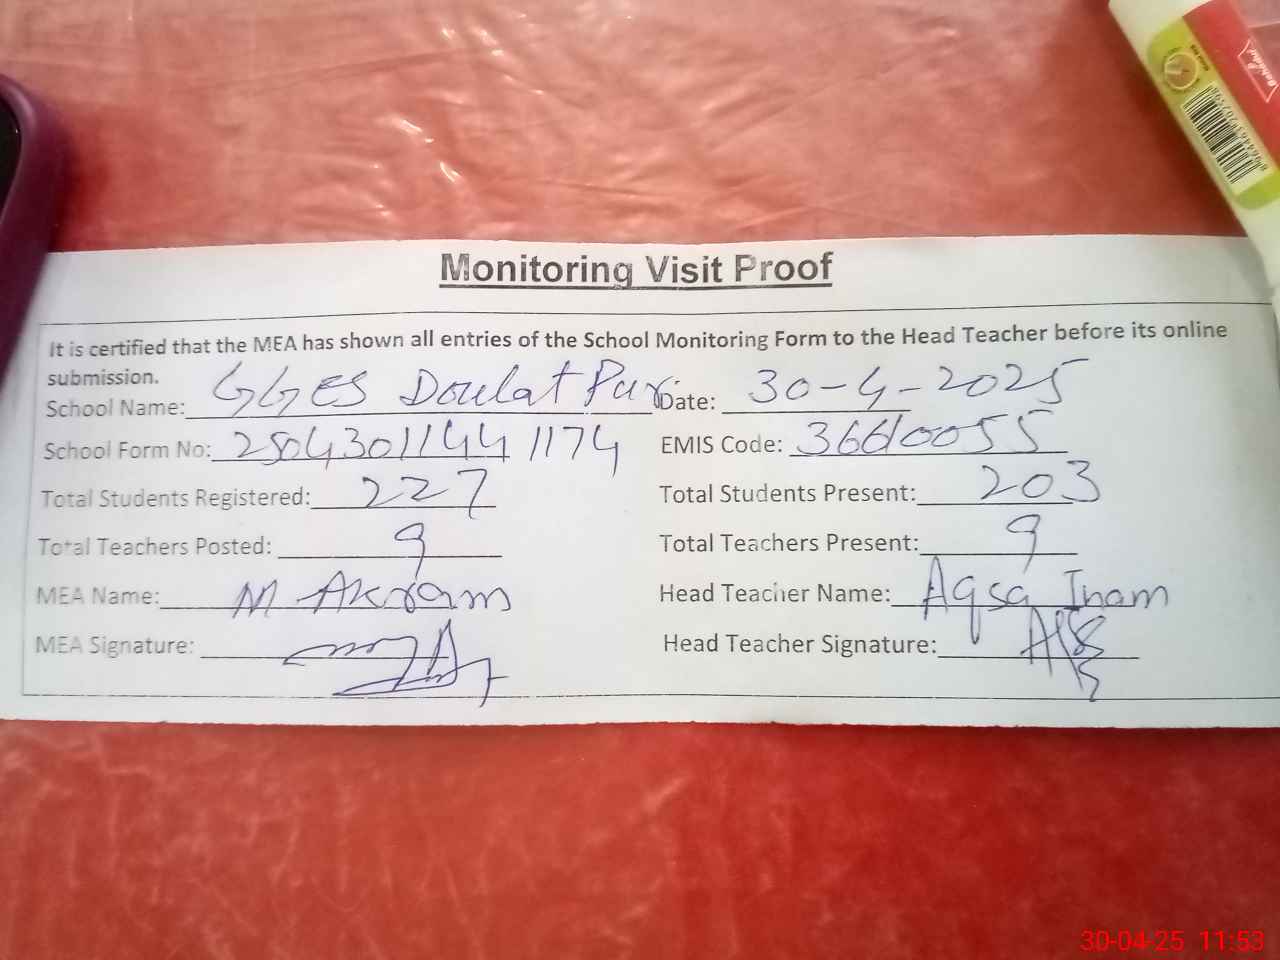 Monitoring Visit Proof
It is certified that the MEA has shown all entries of the School Monitoring Form to the Head Teacher before its online
submission.
School Name: GGES Doulat Pur Date: 30-4-2025
School Form No: 2504301144 1174 EMIS Code: 36610055
Total Students Registered: 227 Total Students Present: 203
Total Teachers Posted: 9 Total Teachers Present: 9
MEA Name: M Akram Head Teacher Name: Aqsa Inam
MEA Signature: Head Teacher Signature:
30-04-25 11:53